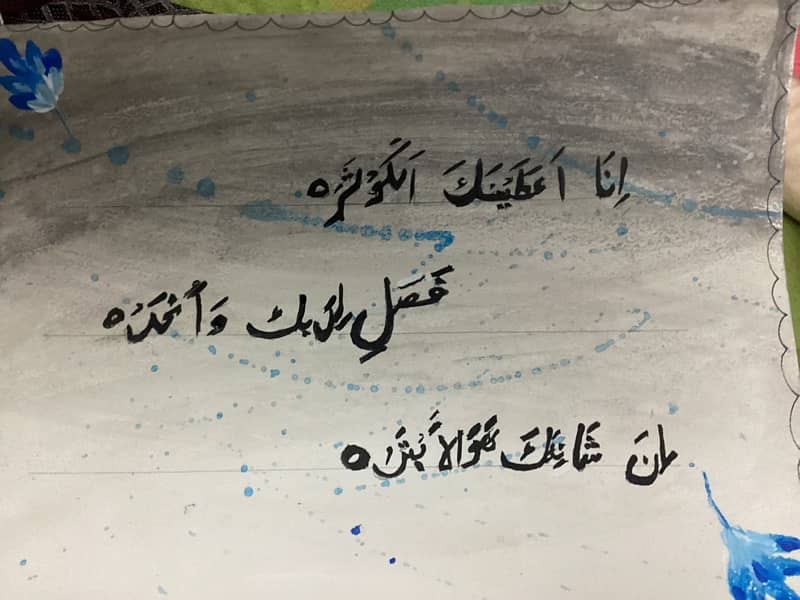 اِنَا اَعطَينٰكَ اَلكَوْثَرَ ه
فَصَلِ لِرَبِك وَاُنحَرْ ه
اِنَ شَانِئَكَ هُوَالاَبْتَرُ ه